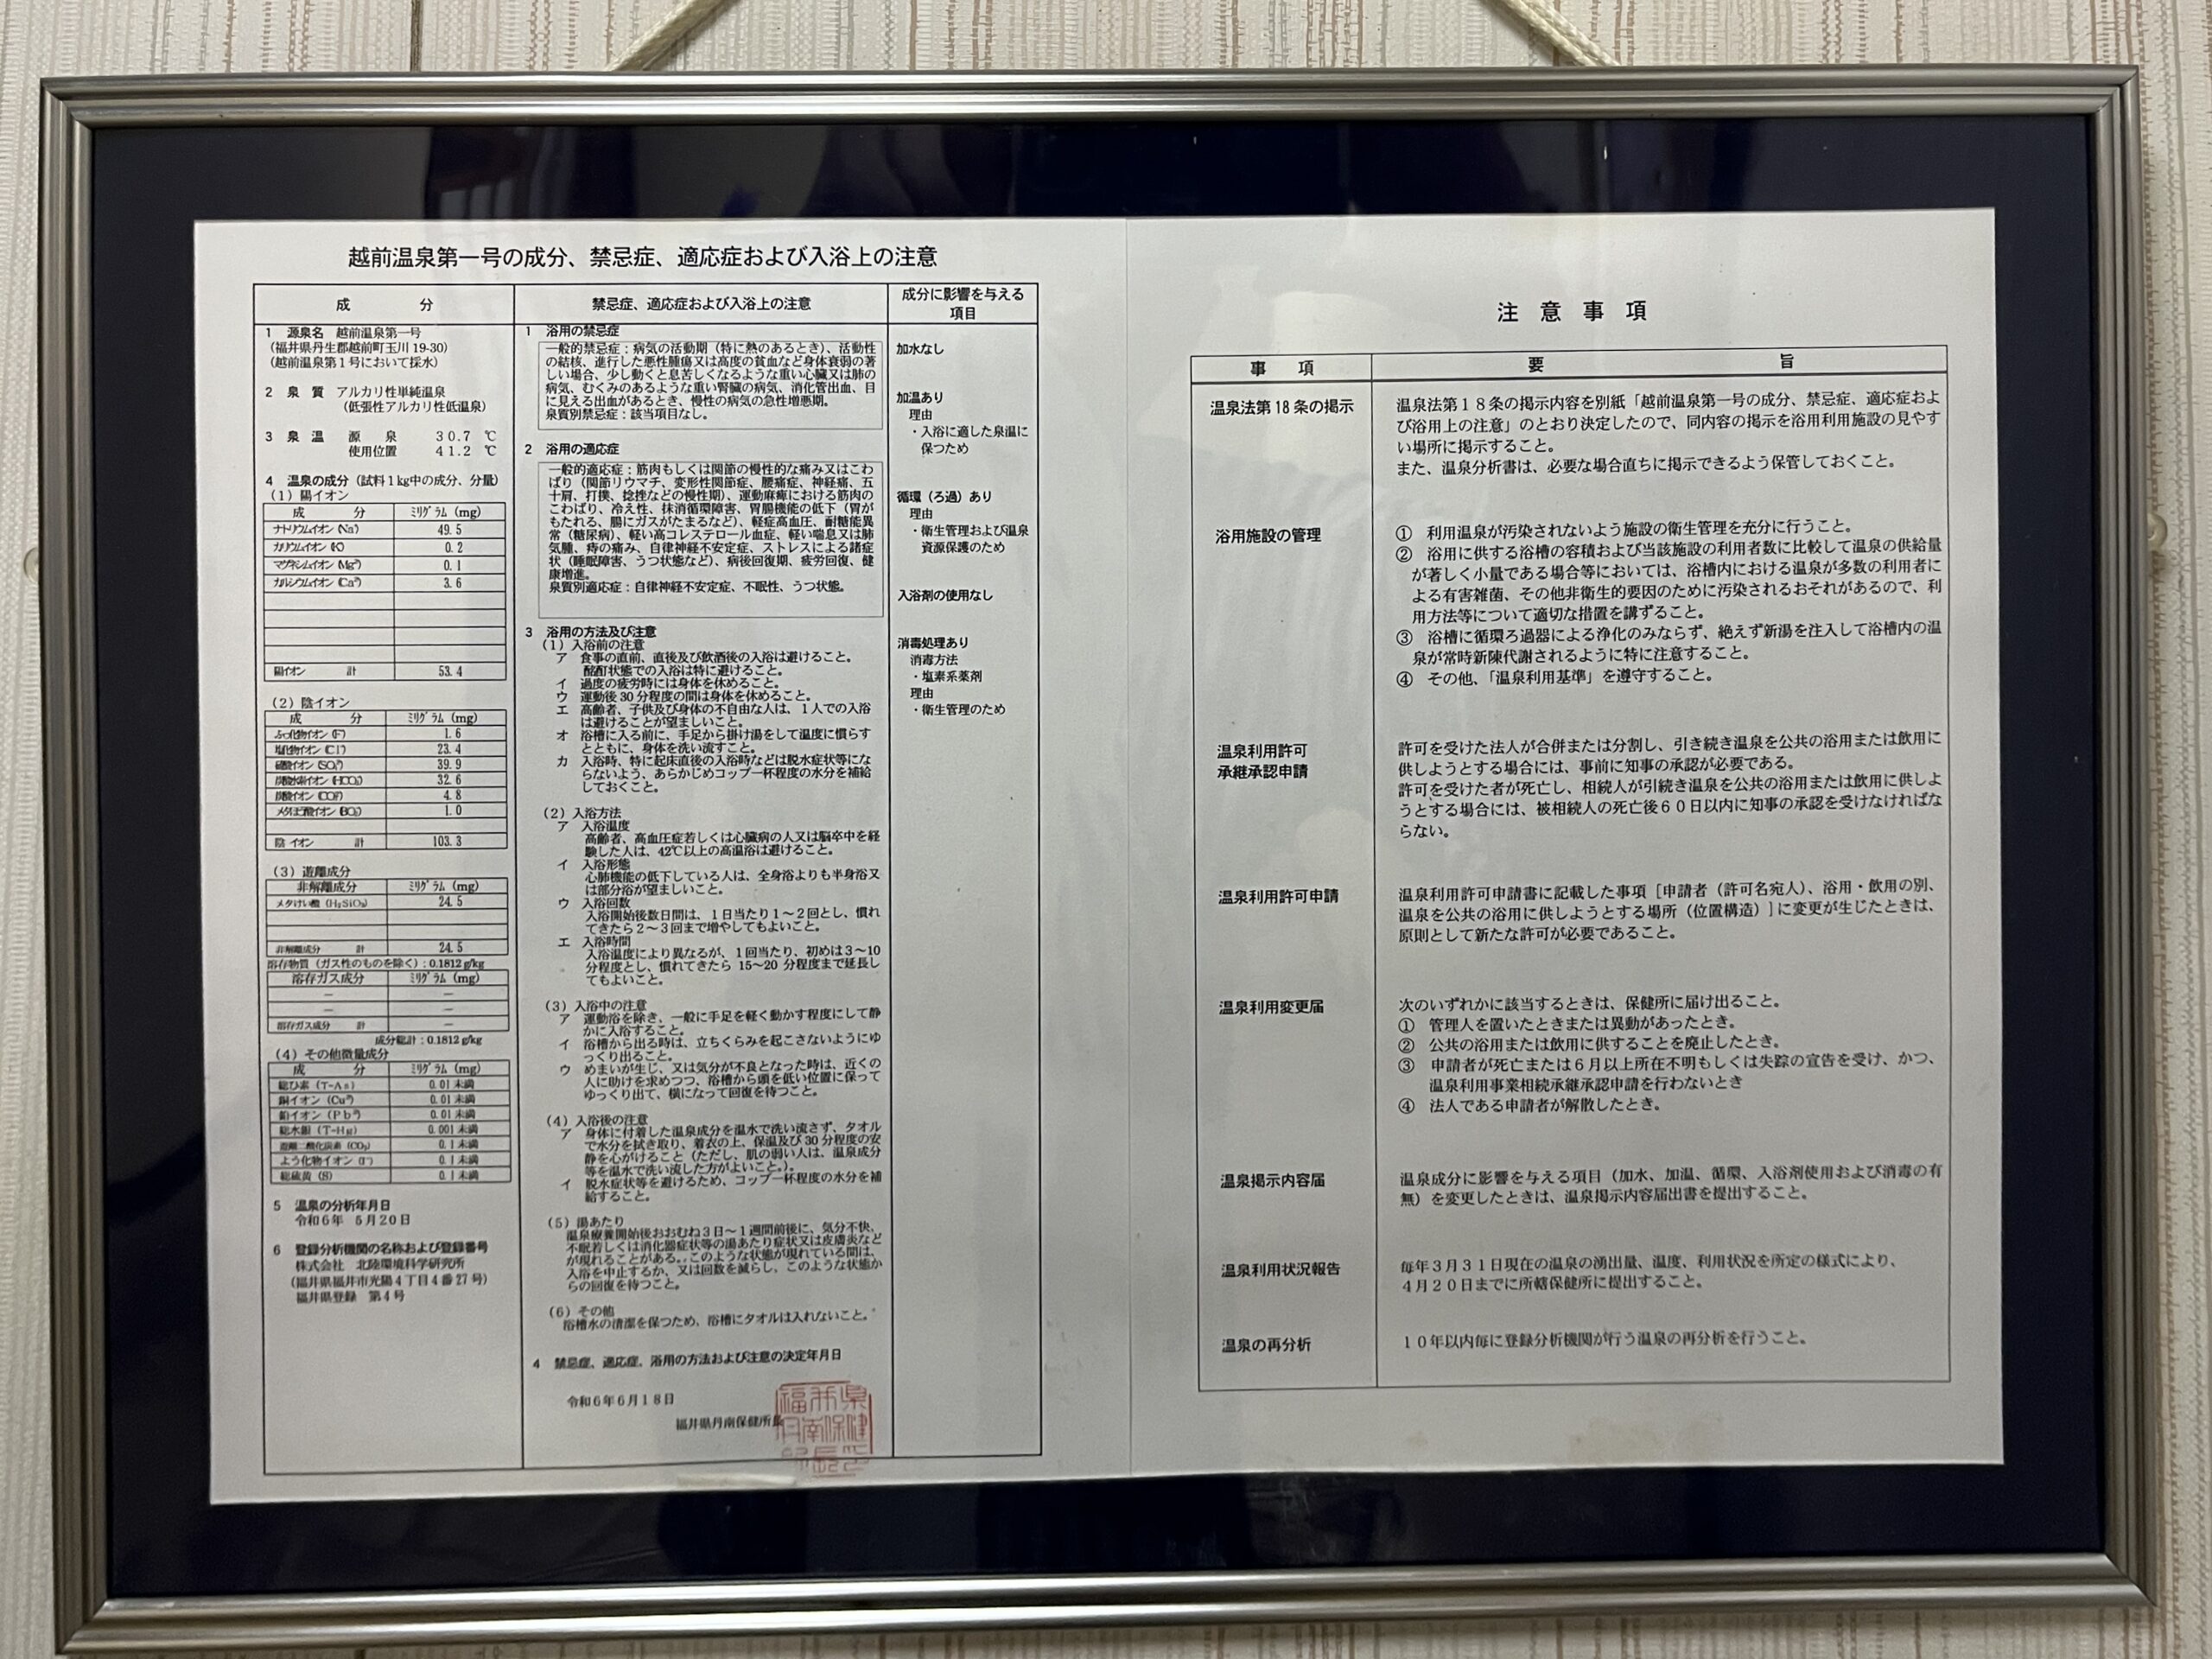 越前温泉第一号の成分、禁忌症、適応症および入浴上の注意
成 分
1 源泉名 越前温泉第一号
(福井県丹生郡越前町玉川 19-30)
(越前温泉第1号において採水)
2 泉 質 アルカリ性単純温泉
(低張性アルカリ性低温泉)
3 泉 温 源 泉 30.7 ℃
使用位置 41.2 ℃
4 温泉の成分(試料1kg中の成分、分量)
(1)陽イオン
成 分 ミリグラム (mg)
ナトリウムイオン (Na⁺) 49.5
カリウムイオン (K⁺) 0.2
マグネシムイオン (Mg²⁺) 0.1
カルシウムイオン (Ca²⁺) 3.6
陽イオン 計 53.4
(2)陰イオン
成 分 ミリグラム (mg)
ふっ化物イオン (F⁻) 1.6
塩化物イオン (Cl⁻) 23.4
硫酸イオン (SO₄²⁻) 39.9
炭酸水素イオン (HCO₃⁻) 32.6
炭酸イオン (CO₃²⁻) 4.8
メタほう酸イオン (BO₂⁻) 1.0
陰イオン 計 103.3
(3)遊離成分
非解離成分 ミリグラム (mg)
メタけい酸 (H₂SiO₃) 24.5
非解離成分 計 24.5
溶存物質(ガス性のものを除く):0.1812 g/kg
溶存ガス成分 ミリグラム (mg)
― ―
― ―
溶存ガス成分 計 ―
成分総計:0.1812 g/kg
(4)その他微量成分
成 分 ミリグラム (mg)
総ひ素 (T-As) 0.01 未満
銅イオン (Cu²⁺) 0.01 未満
鉛イオン (Pb²⁺) 0.01 未満
総水銀 (T-Hg) 0.001 未満
遊離二酸化炭素 (CO₂) 0.1 未満
よう化物イオン (I⁻) 0.1 未満
総硫黄 (S) 0.1 未満
5 温泉の分析年月日
令和6年 5月20日
6 登録分析機関の名称および登録番号
株式会社 北陸環境科学研究所
(福井県福井市光陽4丁目4番27号)
福井県登録 第4号
禁忌症、適応症および入浴上の注意
1 浴用の禁忌症
一般的禁忌症:病気の活動期(特に熱のあるとき)、活動性
の結核、進行した悪性腫瘍又は高度の貧血など身体衰弱の著
しい場合、少し動くと息苦しくなるような重い心臓又は肺の
病気、むくみのあるような重い腎臓の病気、消化管出血、目
に見える出血があるとき、慢性の病気の急性増悪期。
泉質別禁忌症:該当項目なし。
2 浴用の適応症
一般的適応症:筋肉もしくは関節の慢性的な痛み又はこわ
ばり(関節リウマチ、変形性関節症、腰痛症、神経痛、五
十肩、打撲、捻挫などの慢性期)、運動麻痺における筋肉の
こわばり、冷え性、抹消循環障害、胃腸機能の低下(胃が
もたれる、腸にガスがたまるなど)、軽症高血圧、耐糖能異
常(糖尿病)、軽い高コレステロール血症、軽い喘息又は肺
気腫、痔の痛み、自律神経不安定症、ストレスによる諸症
状(睡眠障害、うつ状態など)、病後回復期、疲労回復、健
康増進。
泉質別適応症:自律神経不安定症、不眠性、うつ状態。
3 浴用の方法及び注意
(1)入浴前の注意
ア 食事の直前、直後及び飲酒後の入浴は避けること。
酩酊状態での入浴は特に避けること。
イ 過度の疲労時には身体を休めること。
ウ 運動後30分程度の間は身体を休めること。
エ 高齢者、子供及び身体の不自由な人は、1人での入浴
は避けることが望ましいこと。
オ 浴槽に入る前に、手足から掛け湯をして温度に慣らす
とともに、身体を洗い流すこと。
カ 入浴時、特に起床直後の入浴時などは脱水症状等にな
らないよう、あらかじめコップ一杯程度の水分を補給
しておくこと。
(2)入浴方法
ア 入浴温度
高齢者、高血圧症若しくは心臓病の人又は脳卒中を経
験した人は、42℃以上の高温浴は避けること。
イ 入浴形態
心肺機能の低下している人は、全身浴よりも半身浴又
は部分浴が望ましいこと。
ウ 入浴回数
入浴開始後数日間は、1日当たり1～2回とし、慣れ
てきたら2～3回まで増やしてもよいこと。
エ 入浴時間
入浴温度により異なるが、1回当たり、初めは3～10
分程度とし、慣れてきたら 15～20 分程度まで延長し
てもよいこと。
(3)入浴中の注意
ア 運動浴を除き、一般に手足を軽く動かす程度にして静
かに入浴すること。
イ 浴槽から出る時は、立ちくらみを起こさないようにゆ
っくり出ること。
ウ めまいが生じ、又は気分が不良となった時は、近くの
人に助けを求めつつ、浴槽から頭を低い位置に保って
ゆっくり出て、横になって回復を待つこと。
(4)入浴後の注意
ア 身体に付着した温泉成分を温水で洗い流さず、タオル
で水分を拭き取り、着衣の上、保温及び30分程度の安
静を心がけること(ただし、肌の弱い人は、温泉成分
等を温水で洗い流した方がよいこと。)。
イ 脱水症状等を避けるため、コップ一杯程度の水分を補
給すること。
(5)湯あたり
温泉療養開始後おおむね3日～1週間前後に、気分不快、
不眠若しくは消化器症状等の湯あたり症状又は皮膚炎など
が現れることがある。このような状態が現れている間は、
入浴を中止するか、又は回数を減らし、このような状態か
らの回復を待つこと。
(6)その他
浴槽水の清潔を保つため、浴槽にタオルは入れないこと。
4 禁忌症、適応症、浴用の方法および注意の決定年月日
令和6年6月18日
福井県丹南保健所長
成分に影響を与える
項目
加水なし
加温あり
理由
・入浴に適した泉温に
保つため
循環(ろ過)あり
理由
・衛生管理および温泉
資源保護のため
入浴剤の使用なし
消毒処理あり
消毒方法
・塩素系薬剤
理由
・衛生管理のため
注意事項
事 項 要 旨
温泉法第18条の掲示 温泉法第18条の掲示内容を別紙「越前温泉第一号の成分、禁忌症、適応症およ
び浴用上の注意」のとおり決定したので、同内容の掲示を浴用利用施設の見やす
い場所に掲示すること。
また、温泉分析書は、必要な場合直ちに掲示できるよう保管しておくこと。
浴用施設の管理 ① 利用温泉が汚染されないよう施設の衛生管理を充分に行うこと。
② 浴用に供する浴槽の容積および当該施設の利用者数に比較して温泉の供給量
が著しく小量である場合等においては、浴槽内における温泉が多数の利用者に
よる有害雑菌、その他非衛生的要因のために汚染されるおそれがあるので、利
用方法等について適切な措置を講ずること。
③ 浴槽に循環ろ過器による浄化のみならず、絶えず新湯を注入して浴槽内の温
泉が常時新陳代謝されるように特に注意すること。
④ その他、「温泉利用基準」を遵守すること。
温泉利用許可
承継承認申請
許可を受けた法人が合併または分割し、引き続き温泉を公共の浴用または飲用に
供しようとする場合には、事前に知事の承認が必要である。
許可を受けた者が死亡し、相続人が引続き温泉を公共の浴用または飲用に供しよ
うとする場合には、被相続人の死亡後60日以内に知事の承認を受けなければな
らない。
温泉利用許可申請 温泉利用許可申請書に記載した事項[申請者(許可名宛人)、浴用・飲用の別、
温泉を公共の浴用に供しようとする場所(位置構造)]に変更が生じたときは、
原則として新たな許可が必要であること。
温泉利用変更届 次のいずれかに該当するときは、保健所に届け出ること。
① 管理人を置いたときまたは異動があったとき。
② 公共の浴用または飲用に供することを廃止したとき。
③ 申請者が死亡または6月以上所在不明もしくは失踪の宣告を受け、かつ、
温泉利用事業相続承継承認申請を行わないとき
④ 法人である申請者が解散したとき。
温泉掲示内容届 温泉成分に影響を与える項目(加水、加温、循環、入浴剤使用および消毒の有
無)を変更したときは、温泉掲示内容届出書を提出すること。
温泉利用状況報告 毎年3月31日現在の温泉の湧出量、温度、利用状況を所定の様式により、
4月20日までに所轄保健所に提出すること。
温泉の再分析 10年以内毎に登録分析機関が行う温泉の再分析を行うこと。